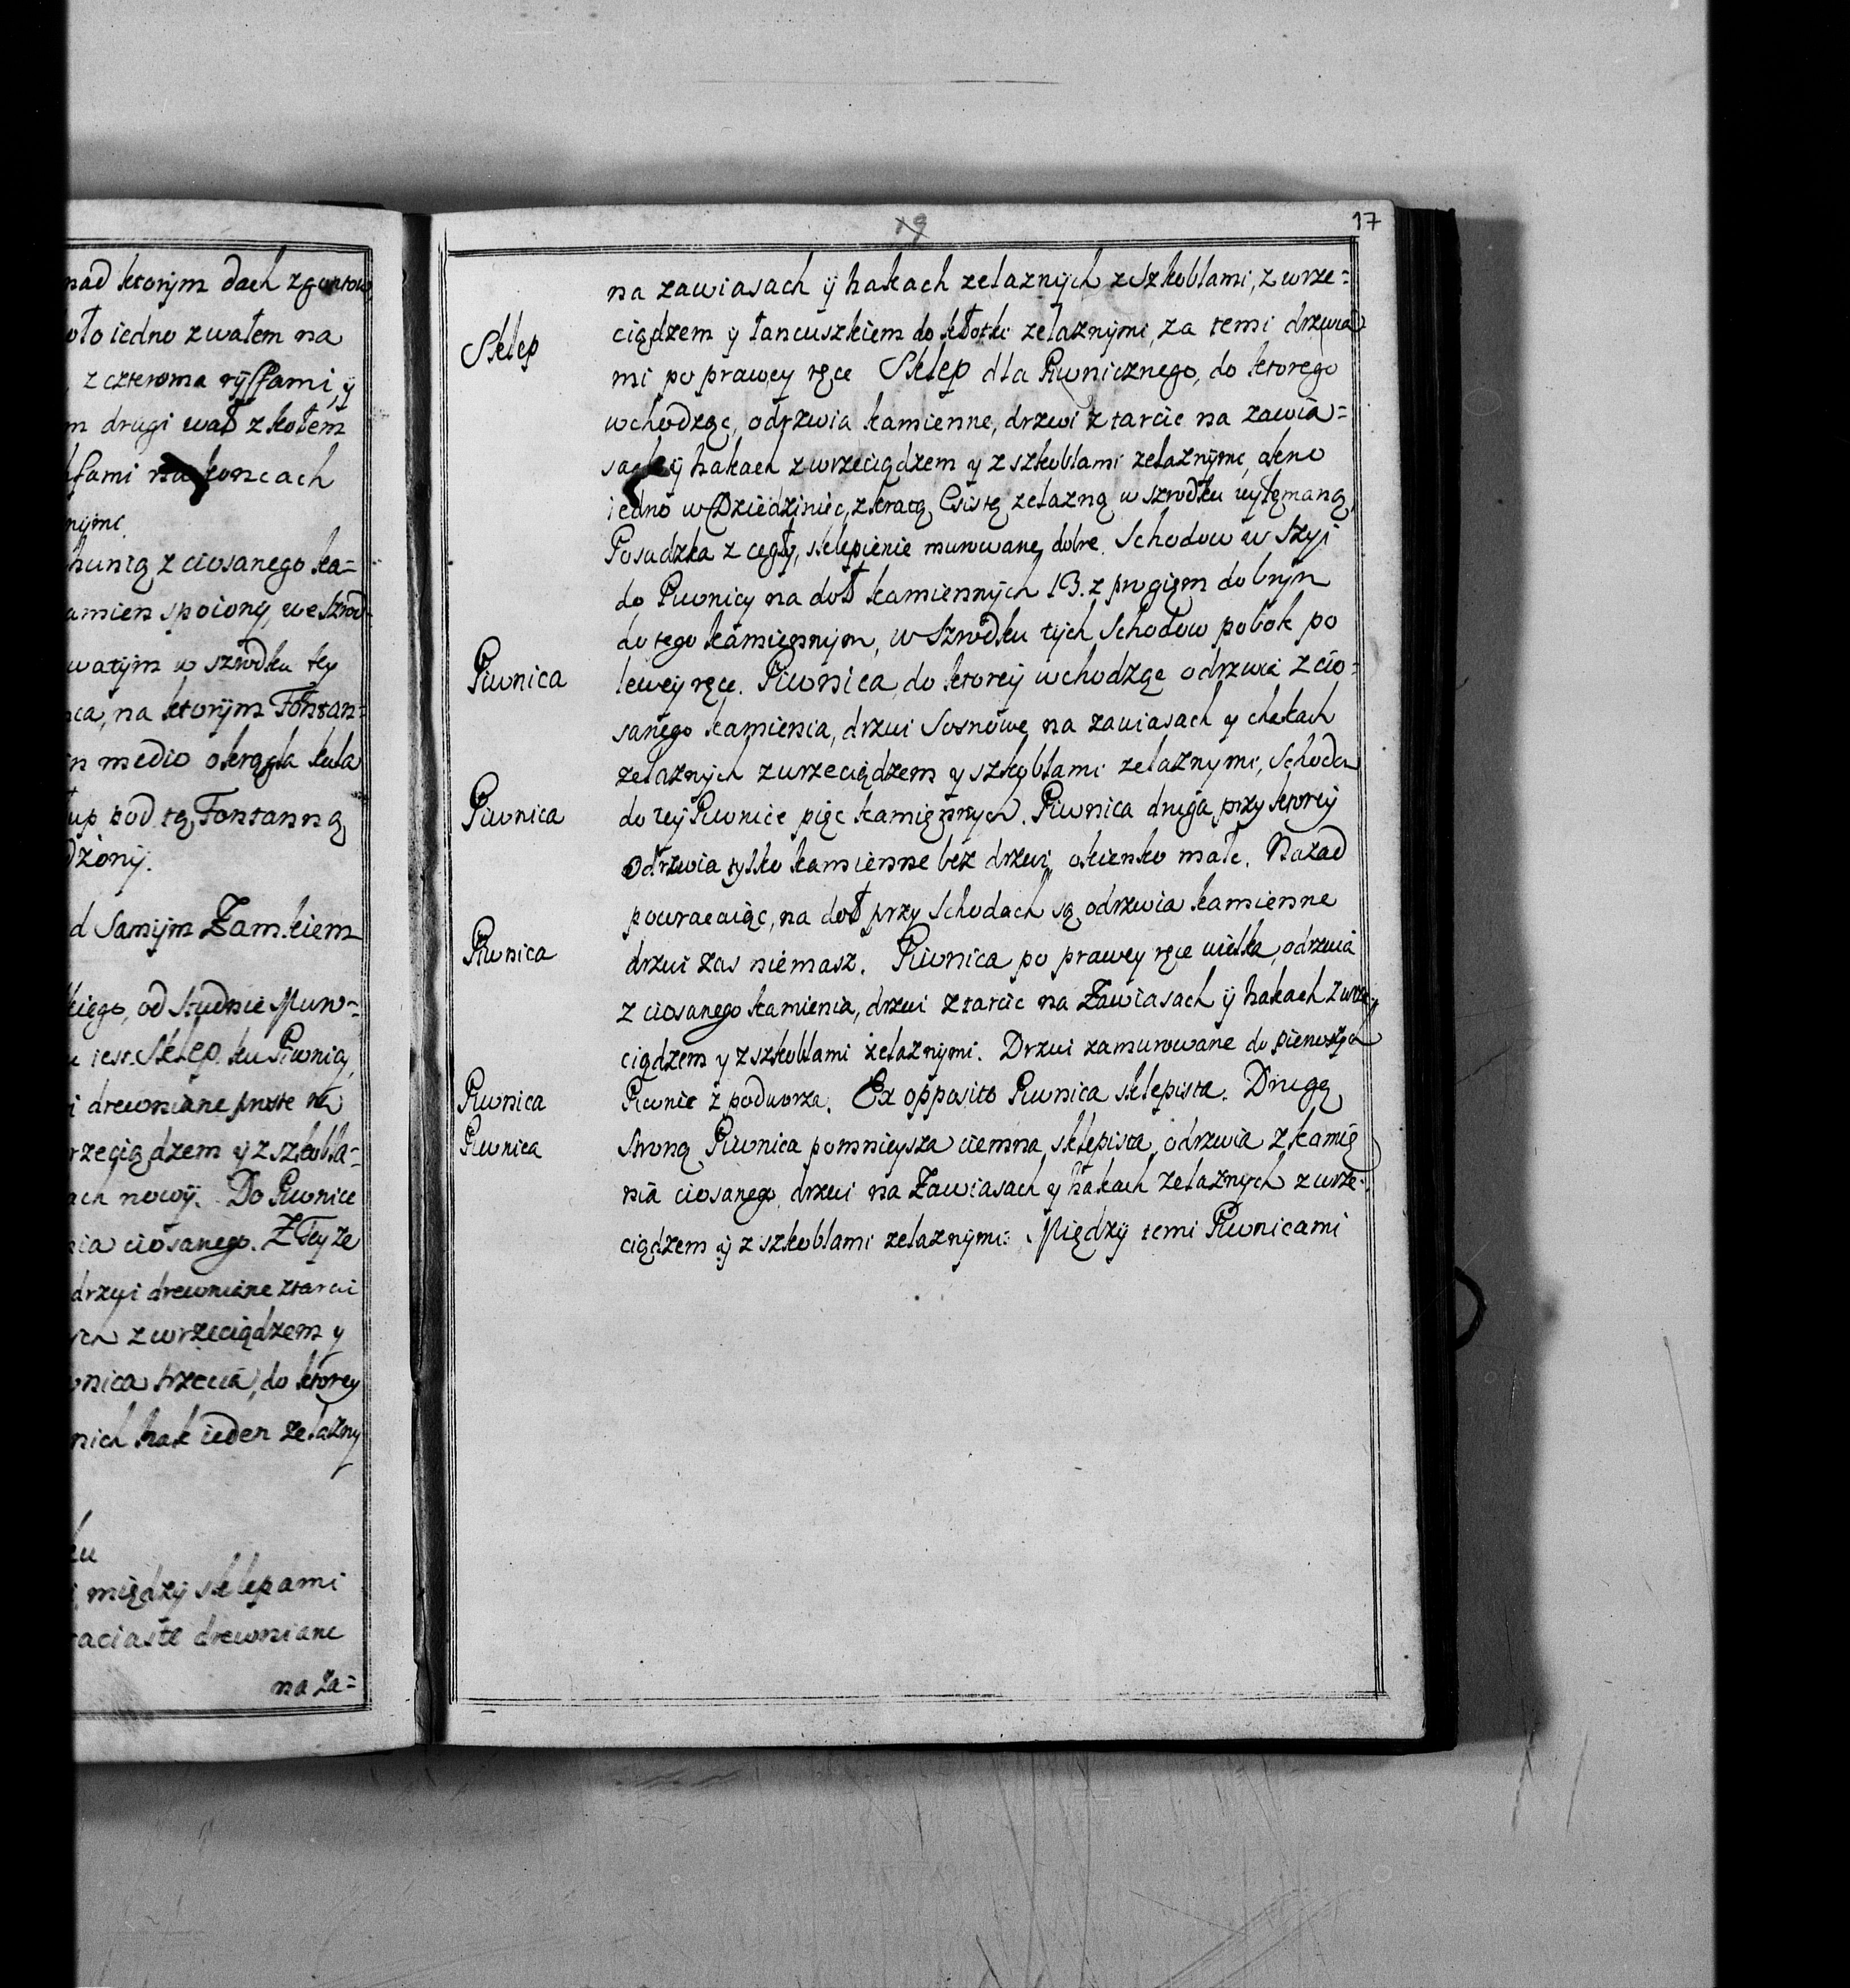 nad ktorym dach z gontow
oło iedno z wałem na
z czteroma ryffami, ÿ
m drugi wał z kołem
ffami na koncach
nymi
hunią z ciosanego ka=
amien spoiony, we szrod-
watym w szrodku tey
ca, na ktorÿm Fontan=
in medio okrągła kula
łup pod tą Fontanną
dzonÿ.
d Samÿm Zamkiem
kiego, od Studnie Muro=
u iest Sklep ku Piwnicy,
i drewniane proste na
rzeciądzem ÿ z szkobla=
ach nowÿ. Do Piwnice
nia ciosanego. Z Teyze
drzwi drewniane z tarcic
ych z wrzeciądzem y
wnica trzecia, do ktorey
nich hak ieden zelazny
ku
i między sklepami
raciaste drewniane
na za=
19
17
na zawiasach ÿ hakach zelaznÿch z szkoblami, z wrze=
ciądzem y łancuszkiem do kłotki zelaznÿmi, za temi drzwia
Sklep
mi po prawey ręce Sklep dla Piwnicznego, do ktorego
wchodząc, odrzwia kamienne, drzwi z tarcic na zawia=
sach ÿ hakach z wrzeciądzem y z szkoblami zelaznÿmi, okno
iedno w Dziedziniec, z kratą Czistą zelazną w szrodku wyłamaną
Posadzka z cegły, sklepienie murowane dobre. Schodow w Szyi
do Piwnicy na doł kamiennÿch 13. z progiem dobrÿm
do tego kamiennÿm, w Szrodku tÿch Schodow pobok po
Piwnica
lewey ręce. Piwnica, do ktorey wchodząc odrzwia z cio=
sanego kamienia, drzwi Sosnowe na zawiasach y hakach
zelaznych z wrzeciądzem y szkoblami zelaznymi, Schodow
Piwnica
do teÿ Piwnice pięc kamiennych. Piwnica druga, przy ktoreÿ
Odrzwia tylko kamienne bez drzwi, okienko małe. Nazad
powracaiąc, na doł przy Schodach są odrzwia kamienne
Piwnica
drzwi zas niemasz. Piwnica po prawey ręce wielka, odrzwia
z ciosanego kamienia, drzwi z tarcic na Zawiasach ÿ hakach z wrze-
ciądzem y z szkoblami żelaznÿmi. Drzwi zamurowane do pierwszych
Piwnica
Piwnic z podworza. Ex opposito Piwnica sklepista. Drugą
Piwnica
Stroną Piwnica pomnieysza ciemna sklepista, odrzwia z kamie
nia ciosanego, drzwi na Zawiasach y hakach zelaznych z wrze-
ciądzem ÿ z szkoblami zelaznÿmi. Międzÿ temi Piwnicami